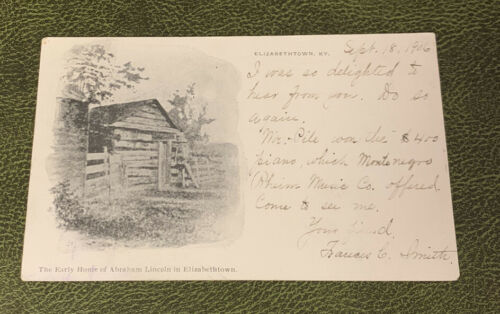 ELIZABETHTOWN, KY.
Sept. 18, 1906
I was so delighted to
hear from you. Do so
again.
"Mr. Pile won the" $400
piano, which Montenegro
Rheim Music Co. offered
Come to see me.
Your friend.
Frances C. Smith.
The Early Home of Abraham Lincoln in Elizabethtown.